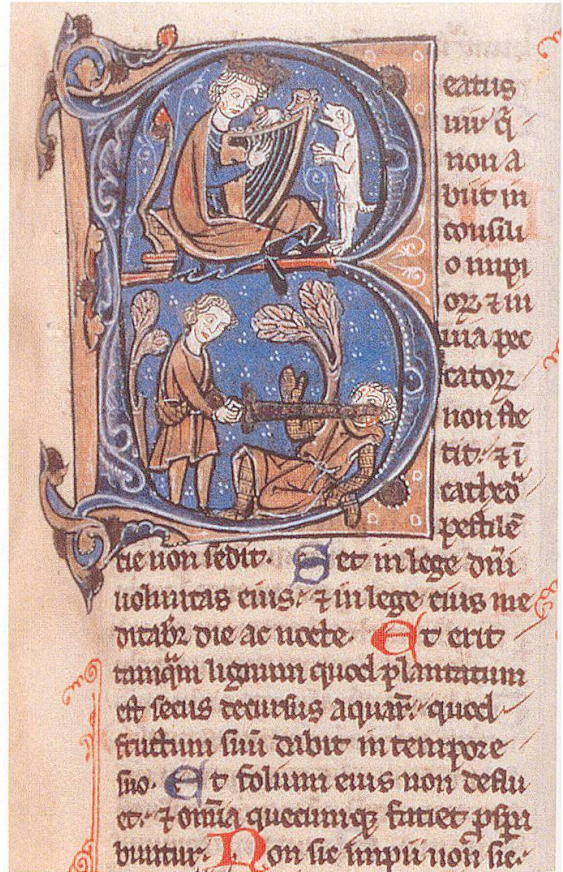 Beatus
uir q̄
non a
biit in
consili
o impi
oꝝ ⁊ in
uia pec
catoꝝ
non ste
tit· ⁊ ī
cathed̄
pestilē
tie non sedit. Set in lege dn̄i
uoluntas eius: ⁊ in lege eius me
ditabr̄ die ac nocte. Et erit
tamq̄m lignum quod plantatum
est secus decursus aquar̄: quod
fructum suū dabit in tempore
suo. Et folium eius non deflu
et: ⁊ om̄ia quecumqꝫ faciet psꝑa
buntur. Non sic impii non sic: